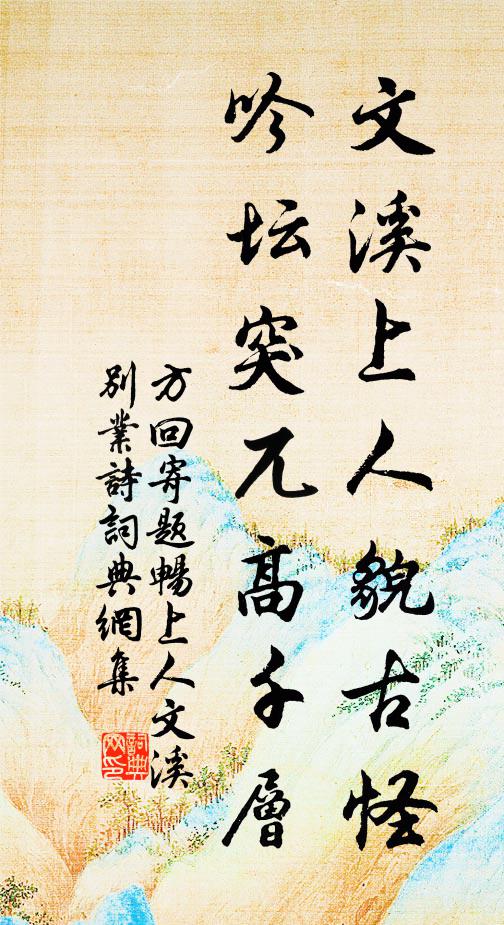 文溪上人貌古怪
吟坛突兀高千層
方回寄题暢上人文溪
別業詩詞典網集
詞典
网印